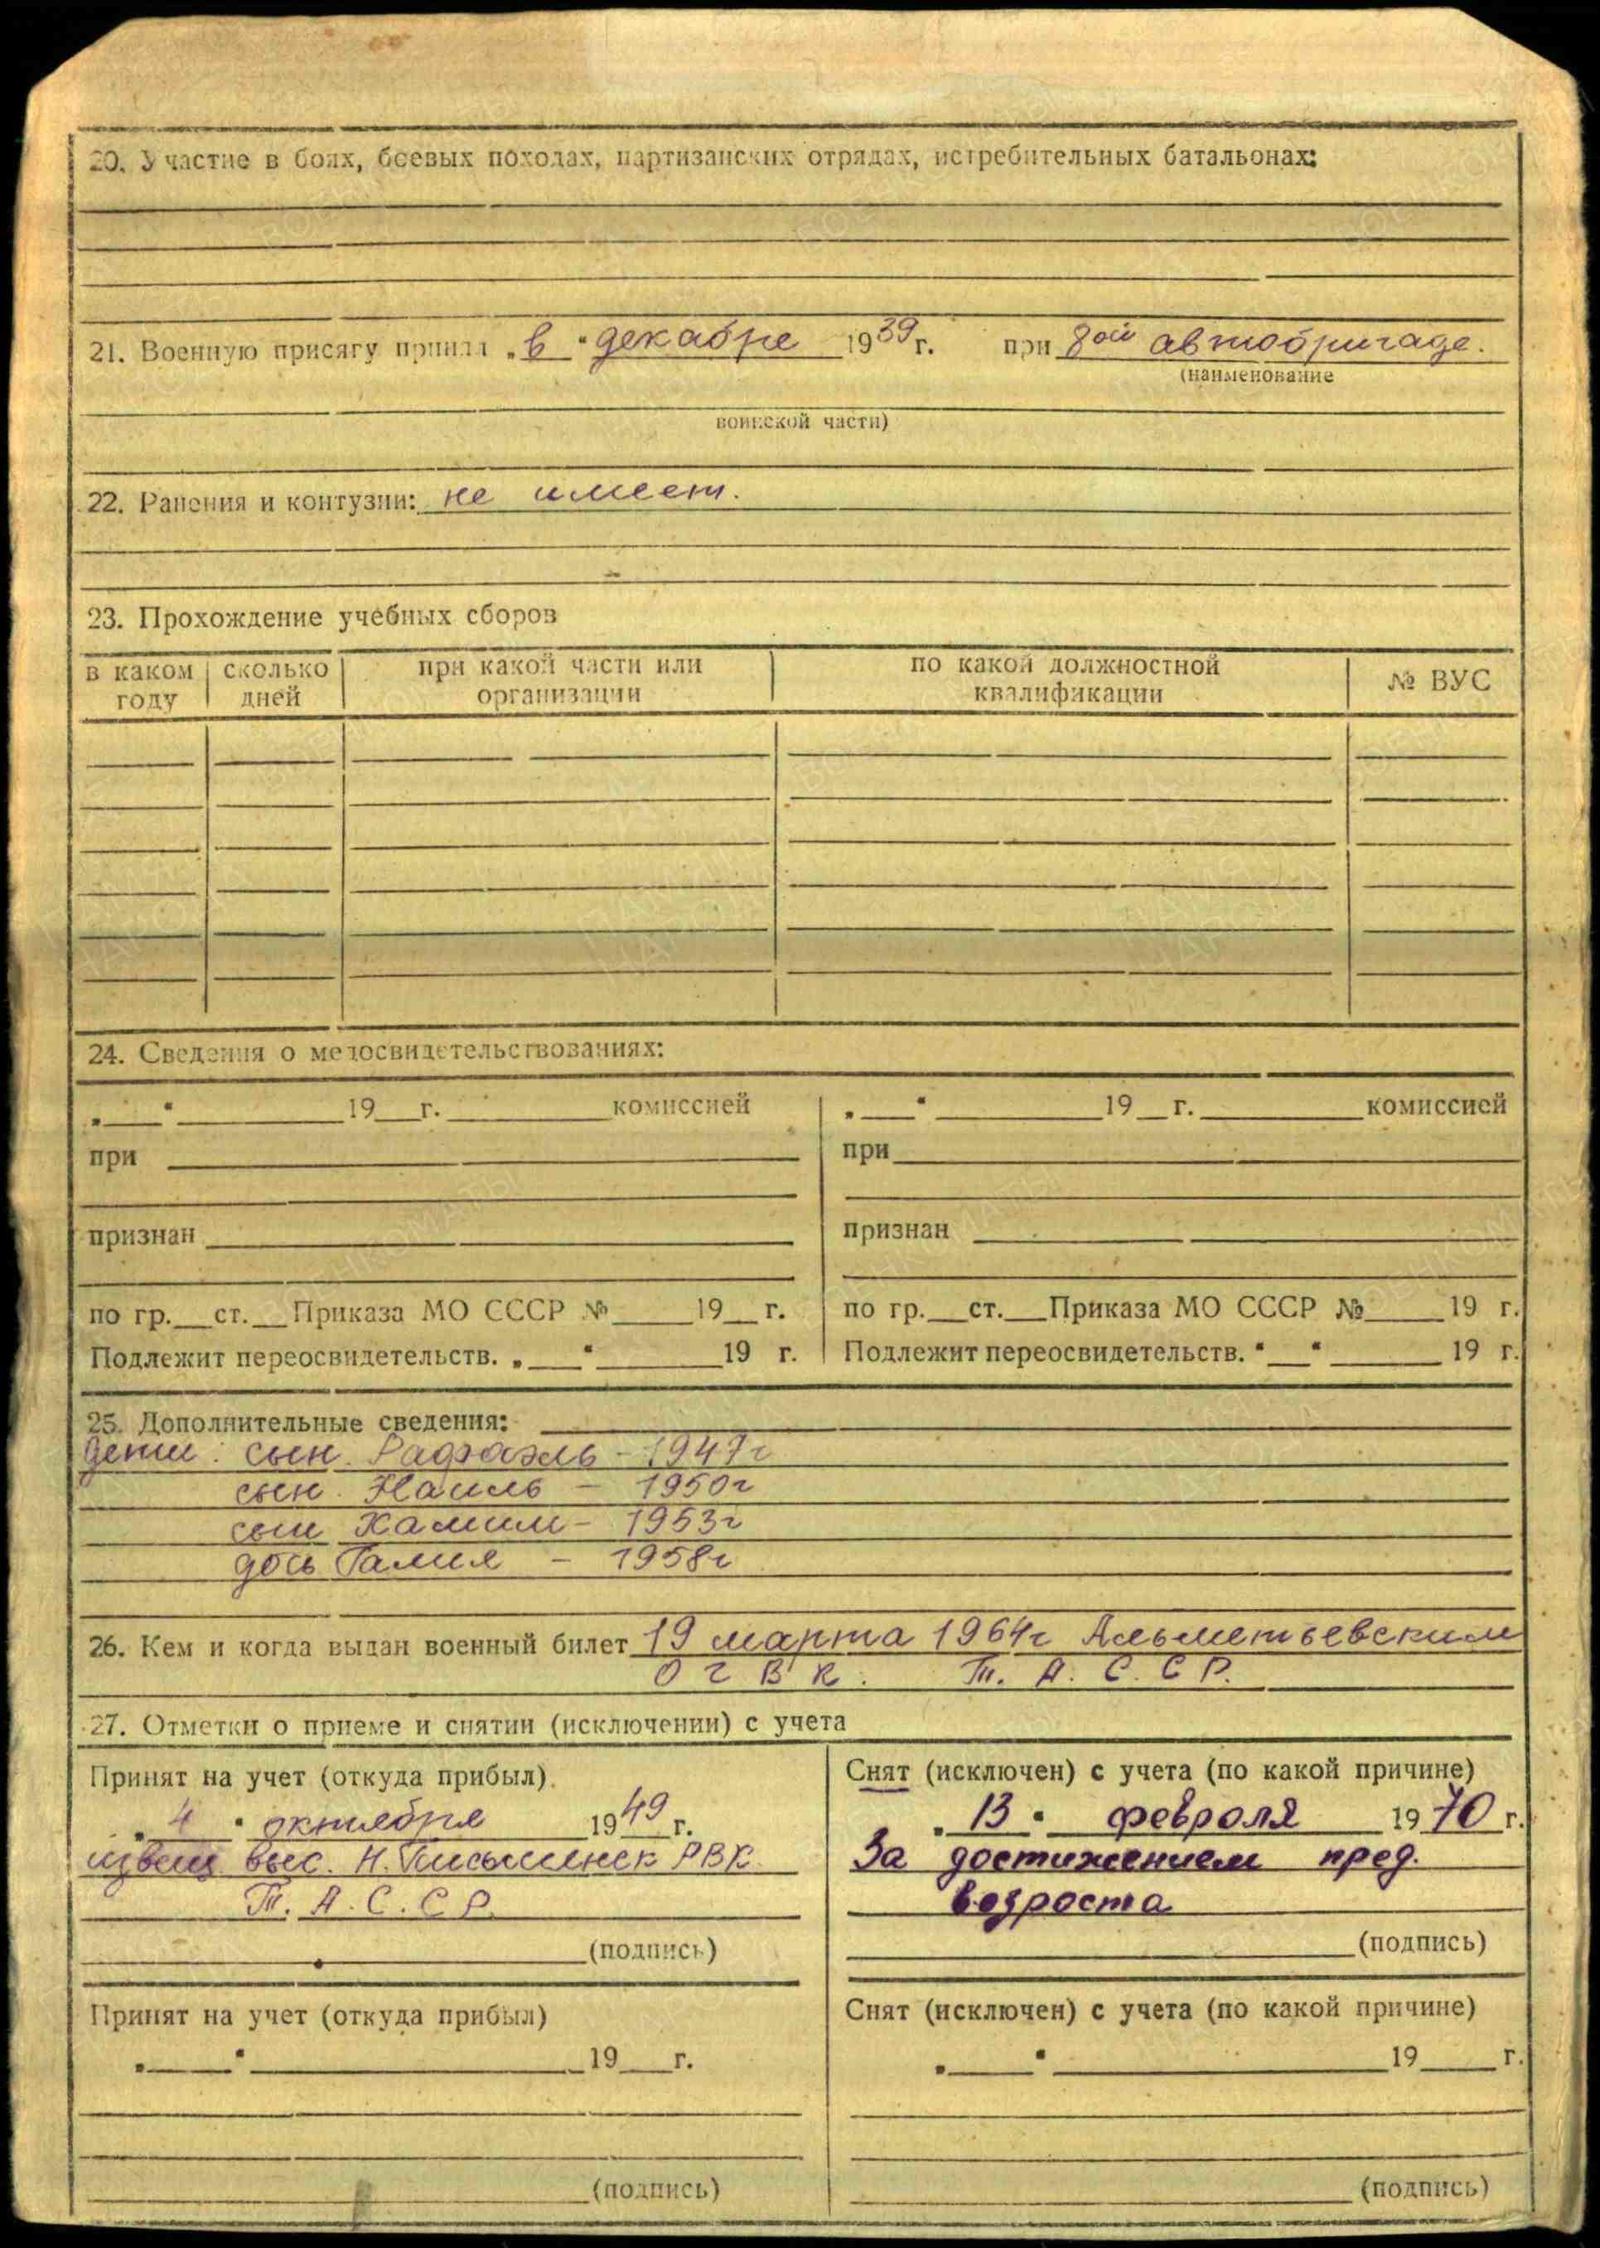 20. Участие в боях, боевых походах, партизанских отрядах, истребительных батальонах:
21. Военную присягу принял „в“ декабре 1939 г. при 8ой автобригаде.
(наименование
воинской части)
22. Ранения и контузии: не имеет.
23. Прохождение учебных сборов
в каком году сколько дней при какой части или организации по какой должностной квалификации № ВУС
24. Сведения о медосвидетельствованиях:
„___“ ______ 19__ г. ______ комиссией
при
признан
по гр.__ст.__Приказа МО СССР №____19__ г.
Подлежит переосвидетельств. „___“______19 г.
„___“ ______ 19__ г. ______ комиссией
при
признан
по гр.__ст.__Приказа МО СССР №____19 г.
Подлежит переосвидетельств. “__“______ 19 г.
25. Дополнительные сведения:
дети: сын Рафаэль - 1947г
сын Наиль - 1950г
сын Хамим - 1953г
дочь Галия - 1958г
26. Кем и когда выдан военный билет 19 марта 1964г Альметьевским
О Г В К. Т. А. С. С Р.
27. Отметки о приеме и снятии (исключении) с учета
Принят на учет (откуда прибыл).
„4“ октября 1949 г.
извещ. выс. Н. Письмянск РВК
Т. А. С. С Р.
(подпись)
Снят (исключен) с учета (по какой причине)
„13“ февроля 1970 г.
За достижением пред.
возроста
(подпись)
Принят на учет (откуда прибыл)
„____“ ______ 19__ г.
(подпись)
Снят (исключен) с учета (по какой причине)
„____“ ______ 19__ г.
(подпись)